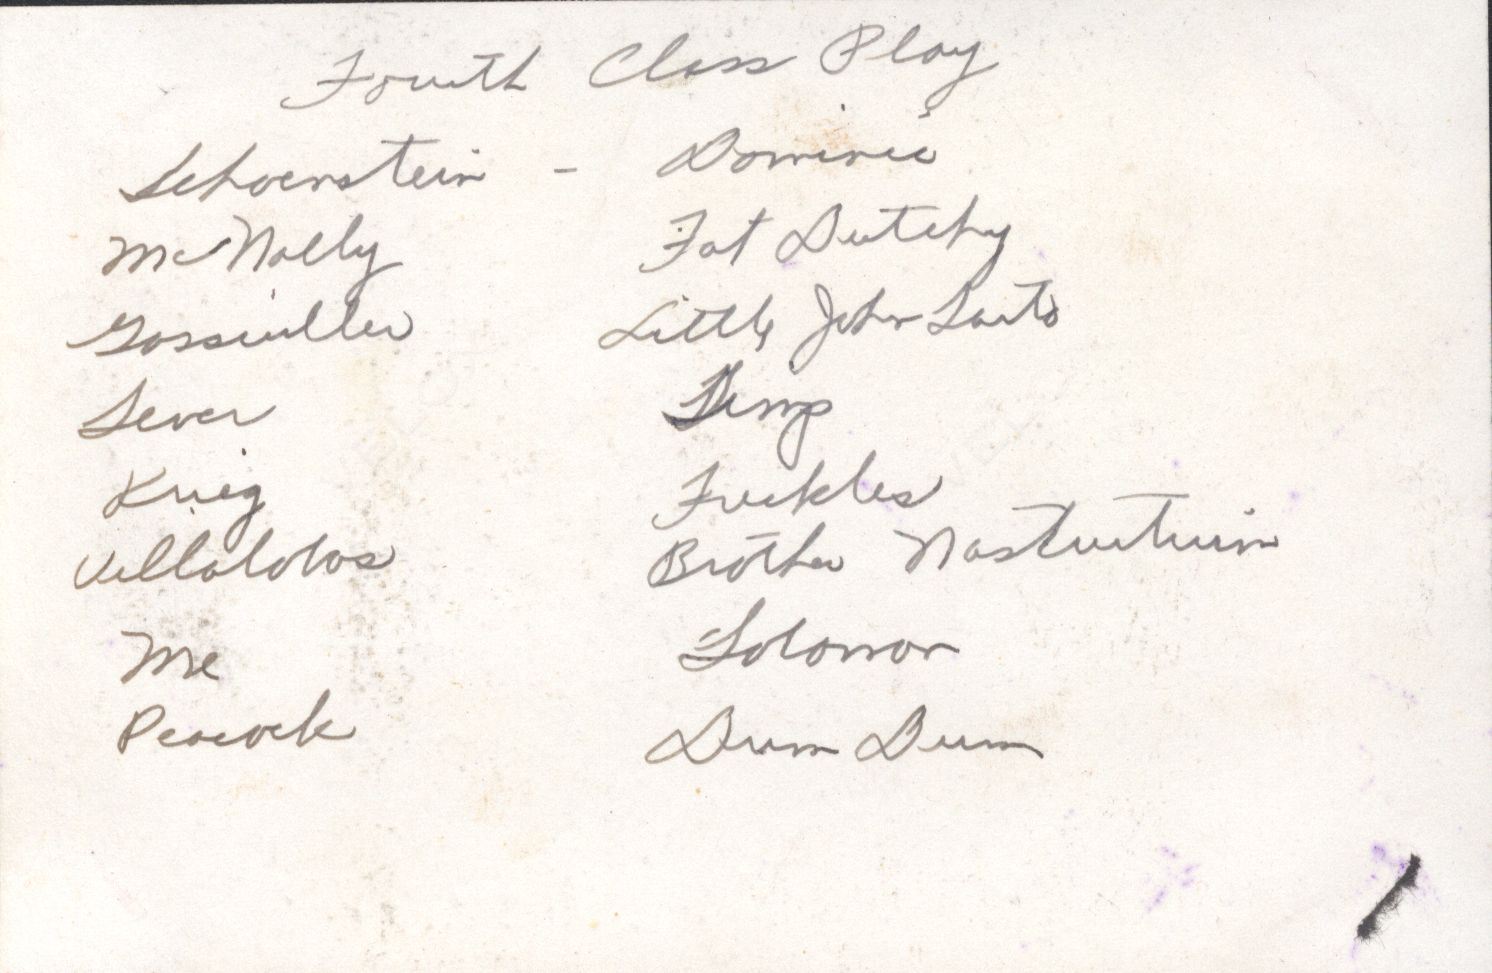 Fourth Class Play
Schoenstein - Dominic
McNally Fat Dutchy
Gosswiller Little John Sarto
Sever Gimp
Krieg Freckles
Villalobos Brother Nasturtium
Me Solomon
Peacock Dum Dum